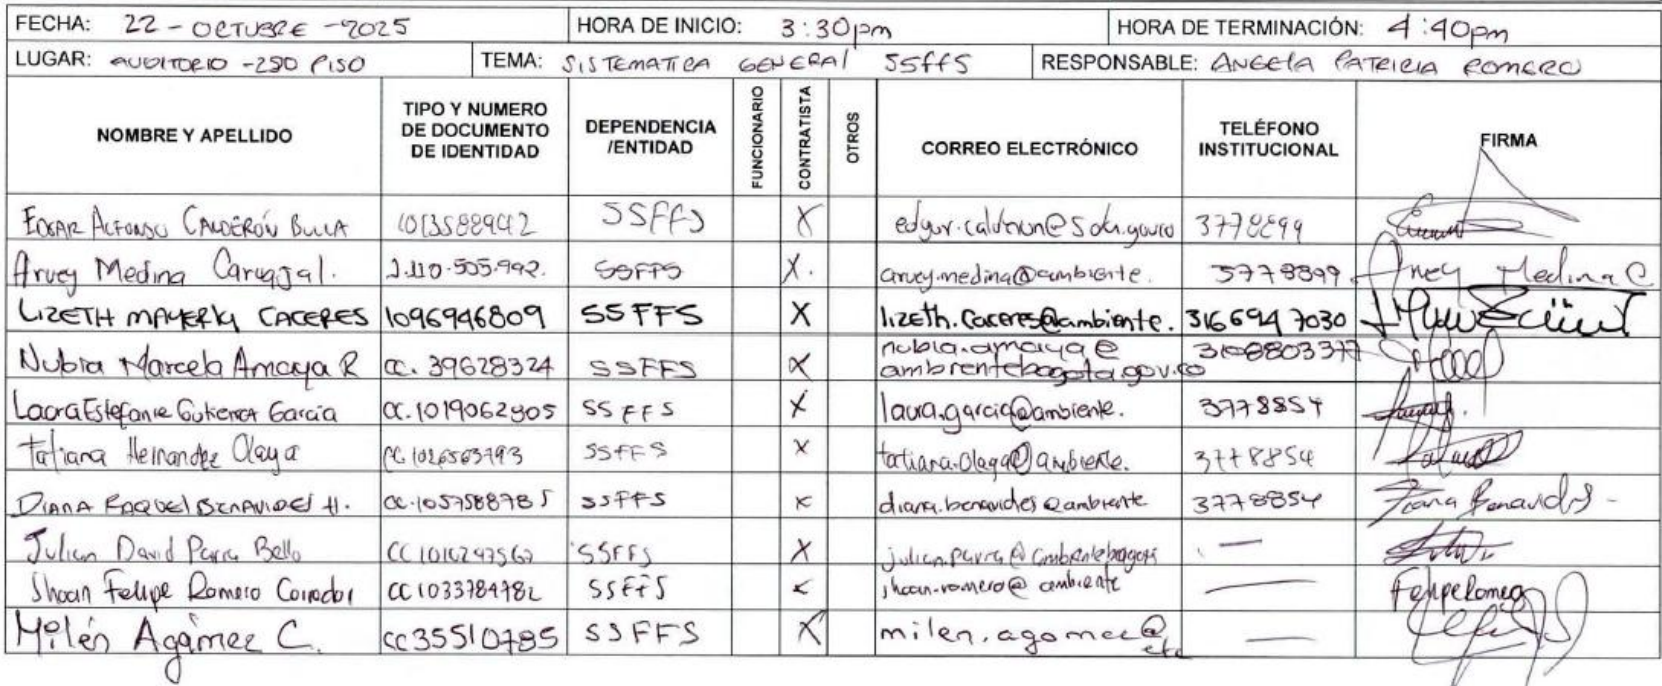 FECHA: 22 - OCTUBRE - 2025 HORA DE INICIO: 3:30pm HORA DE TERMINACIÓN: 4:40pm
LUGAR: AUDITORIO - 2DO PISO TEMA: SISTEMATICA GENERAL SSFFS RESPONSABLE: ANGELA PATRICIA ROMERO
NOMBRE Y APELLIDO TIPO Y NUMERO DE DOCUMENTO DE IDENTIDAD DEPENDENCIA /ENTIDAD FUNCIONARIO CONTRATISTA OTROS CORREO ELECTRÓNICO TELÉFONO INSTITUCIONAL FIRMA
EDGAR ALFONSO CALDERÓN BULLA SSFFS X 3778899
Arvey Medina Carvajal. 1.110.505.992. SSFFS X. arvey.medina@ambiente. 3778899 Arvey Medina C
LIZETH MAYERLY CACERES 1096946809 SSFFS X lizeth.caceres@ambiente. 316 694 7030
Nubia Marcela Amaya R CC. 39628324 SSFFS X nubia.amaya@ ambientebogota.gov.co 3108803377
Laura Estefanie Gutierrez Garcia CC.1019062905 SSFFS X laura.garcia@ambiente. 3778854
Tatiana Hernandez Olaya SSFFS X tatiana.olaya@ambiente. 3778854
DIANA RAQUEL BENAVIDES H. CC.1057588785 SSFFS X diana.benavides@ambiente 3778854 Diana Benavides -
Julian David Parra Bello CC 1016247567 SSFFS X julian.parra@ambientebogota -
Jhoan Felipe Romero Corredor CC 1033784782 SSFFS X jhoan.romero@ambiente - Felipe Romero
Milén Agámez C. CC 35510785 SSFFS X milen.agamez@ etc -